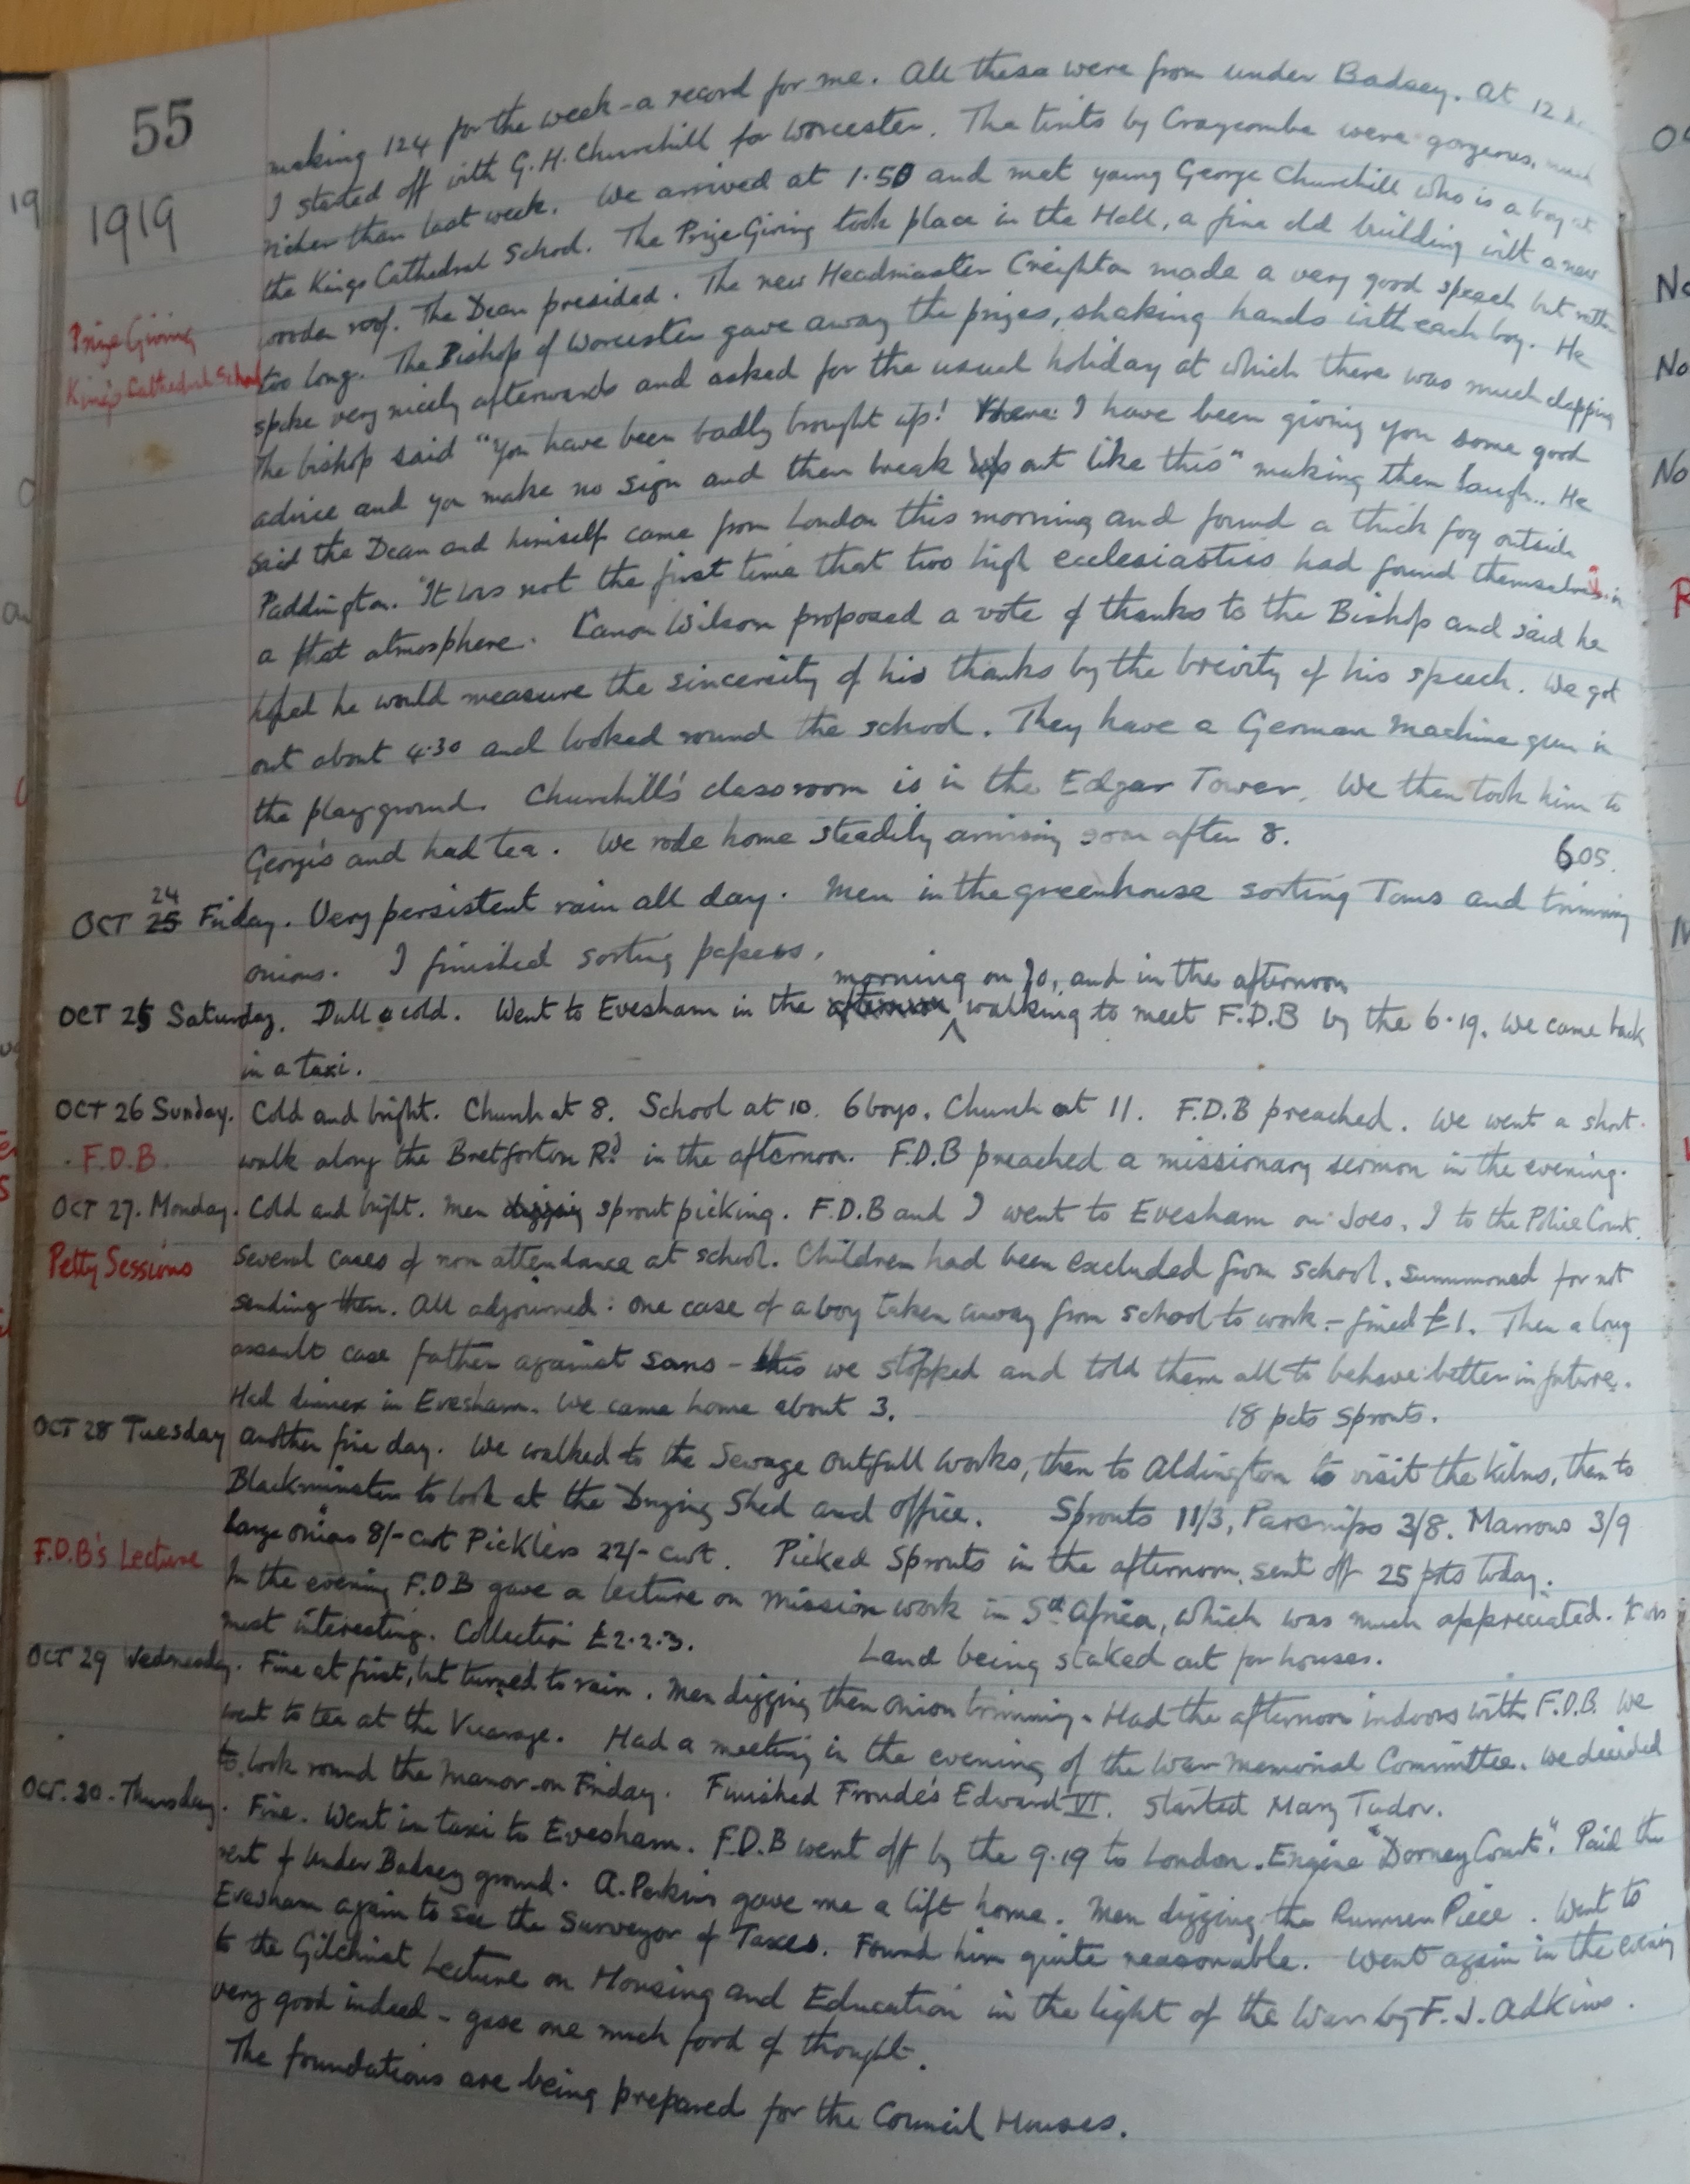 55
1919
making 124 for the week - a record for me. All these were from under Badsey. At 12
I started off with G.H. Churchill for Worcester. The tints by Craycombe were gorgeous, much
richer than last week. We arrived at 1.50 and met young George Churchill who is a boy at
the Kings Cathedral School. The Prize Giving took place in the Hall, a fine old building with a new
wooden roof. The Dean presided. The new Headmaster Creighton made a very good speech but rather
Prize Giving
King's Cathedral School
too long. The Bishop of Worcester gave away the prizes, shaking hands with each boy. He
spoke very nicely afterwards and asked for the usual holiday at which there was much clapping
The bishop said "You have been badly brought up! Here I have been giving you some good
advice and you make no sign and then break out like this" making them laugh.. He
said the Dean and himself came from London this morning and found a thick fog outside
Paddington. "It was not the first time that two high ecclesiastics had found themselves in
a that atmosphere. Canon Wilson proposed a vote of thanks to the Bishop and said he
hoped he would measure the sincerity of his thanks by the brevity of his speech. We got
out about 4.30 and looked round the school. They have a German machine gun in
the playground. Churchill's classroom is in the Edgar Tower. We then took him to
George's and had tea. We rode home steadily arriving soon after 8. 605.
OCT 24 25 Friday. Very persistent rain all day. Men in the greenhouse sorting Toms and trimming
onions. I finished sorting papers.
morning on Jo, and in the afternoon
OCT 25 Saturday. Dull & cold. Went to Evesham in the afternoon walking to meet F.D.B by the 6.19. We came back
in a taxi.
OCT 26 Sunday. Cold and bright. Church at 8. School at 10. 6 boys. Church at 11. F.D.B preached. We went a short
F.D.B. walk along the Bretforton Rd in the afternoon. F.D.B preached a missionary sermon in the evening.
OCT 27. Monday. Cold and bright. Men digging sprout picking. F.D.B and I went to Evesham on Joes, I to the Police Court.
Petty Sessions Several cases of non attendance at school. Children had been excluded from school, summoned for not
sending them. All adjourned: one case of a boy taken away from school to work - fined £1. Then a long
assault case father against sons - this we stopped and told them all to behave better in future.
Had dinner in Evesham. We came home about 3. 18 pots Sprouts.
OCT 28 Tuesday Another fine day. We walked to the Sewage Outfall Works, then to Aldington to visit the kilns, then to
Blackminster to look at the Drying Shed and office. Sprouts 11/3, Parsnips 3/8. Marrows 3/9
large onions 8/- cwt Picklers 22/- cwt. Picked Sprouts in the afternoon, sent off 25 pots today.
F.D.B's Lecture In the evening F.D.B gave a lecture on mission work in Sth Africa, which was much appreciated. It was
most interesting. Collection £2.2.3. Land being staked out for houses.
OCT 29 Wednesday. Fine at first, but turned to rain. Men digging then onion trimming. Had the afternoon indoors with F.D.B. We
went to tea at the Vicarage. Had a meeting in the evening of the War Memorial Committee. We decided
to look round the Manor on Friday. Finished Froude's Edward VI. Started Mary Tudor.
OCT. 30. Thursday. Fine. Went in taxi to Evesham. F.D.B went off by the 9.19 to London. Engine "Dorney Court". Paid the
rent of Under Badsey ground. A. Perkins gave me a lift home. Men digging the Runner Piece. Went to
Evesham again to see the Surveyor of Taxes. Found him quite reasonable. Went again in the evening
to the Gilchrist Lecture on Housing and Education in the light of the War by F.J. Adkins.
very good indeed - gave one much food of thought.
The foundations are being prepared for the Council Houses.